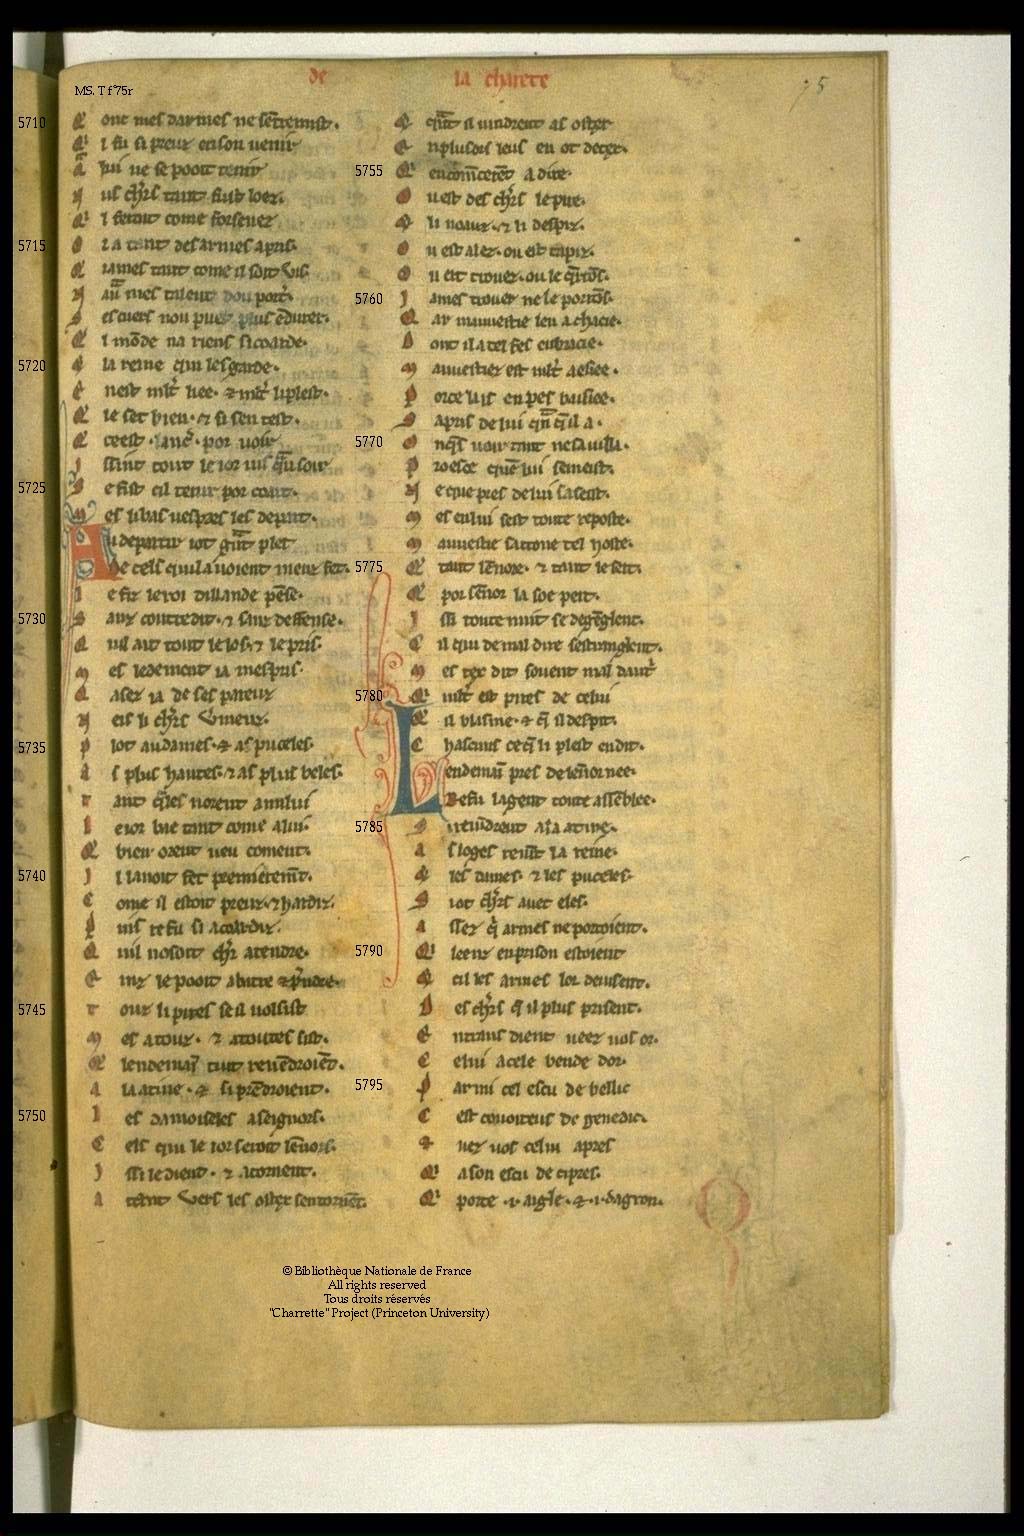 de la charete
75
MS. T f°75r
5710 Q onc mes darmes ne sētremist.
Q i fu si preuz en son venir
q̄ lui ne se pooit tenir
N us chr̄s tant fust loez.
Q i feroit come forsenez
5715 O r a tant des armes apris.
Q iames tant come il soit vis
N aura mes talent dou port̄
S es cuers nou puet plus ēdurer.
Q l mōde na riens si coarde.
5720 Q la reine qui lesgarde.
E nest ml't liee. & ml't li plest.
Q le set bien. & si sen test.
Q ce est. lanc̄. por voir
I ssint tout le ior iusqū soir
5725 S e fist cil tenir por coart.
M es li bas vespres les depart.
A u departir iot grāt plet
De cels qui lauoient meuz fet.
L e fiz le roi dillande pēse.
5730 S anz contredit. & sanz deffense.
Q uil ait tout le los. & le pris.
M es ledement ia mespris.
Q asez ia de ses pareuz
N eis li chr̄s vmeuz.
5735 P lot as dames. & as puceles.
A s plus hautes. & as plus beles.
T ant qeles norent a nului
L e ior bae tant come a lui.
Q bien orent veu coment.
5740 I l lauoit fet premieremt̄.
C ome il estoit preuz. & hardiz.
P uis refu si acoardiz.
Q uil nosoit chr̄ atendre.
E inz le pooit abatre & pn̄dre.
5745 T ouz li pires se il volsist
M es a touz. & a toutes sist.
Q lendemaī tuit reuēdroiēt.
A la atine. & si prēdroient.
L es damoiseles a seignors.
5750 C els qui le ior seroit lēnors.
I ssi le dient. & atornent.
A tant vers les ostez sen tornēt.
Q qn̄t il vindrent as ostez
E n plusors leus en ot detez.
5755 Q encōmcerēt a dire.
O u est des chr̄s le pire.
Q li noauz. & li despiz.
O u est alez. ou est tapiz.
O u ert trouez. ou le qrrōs.
5760 I ames trouer ne le porrōs.
Q ar mauuestie len a chacie.
D ont il a tel fes enbracie.
M auuestiez est ml't aesiee.
P orce lais en pes baisiee.
S apris de lui qn̄qil a.
5770 O nqs voir tant ne sauilla.
P roesce quē lui se meist.
N e que pres de lui sasent.
M es en lui sest toute reposte.
M auuestie sa troue tel hoste.
5775 Q tant lēnore. & tant le sert.
Q por sēnor la soe pert.
I ssi toute nuit se degēglent.
C il qui de mal dire sestranglent.
M es tex dit souent mal dautr̄
5780 Q ml't est pires de celui
Q il blasme. & q il despit.
C hascuns ce q li plest en dit.
L endemaī pres de lenornee.
Refu la gent toute assēblee.
5785 S i reuīdrent a la atine.
A s loges reuīt la reine.
Q les dames. & les puceles.
S i ot chr̄s auec eles.
A ssez q armes ne portoient.
5790 Q i leenz en prison estoient
Q cil les armes lor deuisent.
D es chr̄s q il plus prisent.
E ntraus dient veez uos or.
C elui a cele bende dor.
5795 P armi cel escu de bellic
C est couoiteus de
& uez uos celui apres
Q i a son escu de cipres.
Q i porte .i. aigle. & .i. dagron.
© Bibliothèque Nationale de France
All rights reserved
Tous droits réservés
"Charrette" Project (Princeton University)